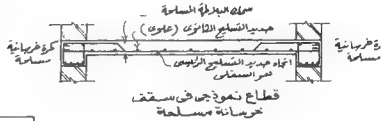 سمك البلاطة المسلحة
حديد التسليح الثانوى (علوى)
كمرة خرسانية
مسلحة
كمرة خرسانية
مسلحة
اتجاه حديد التسليح الرئيسى
هو السفلى
قطاع نموذجى فى سقف
خرسانة مسلحة